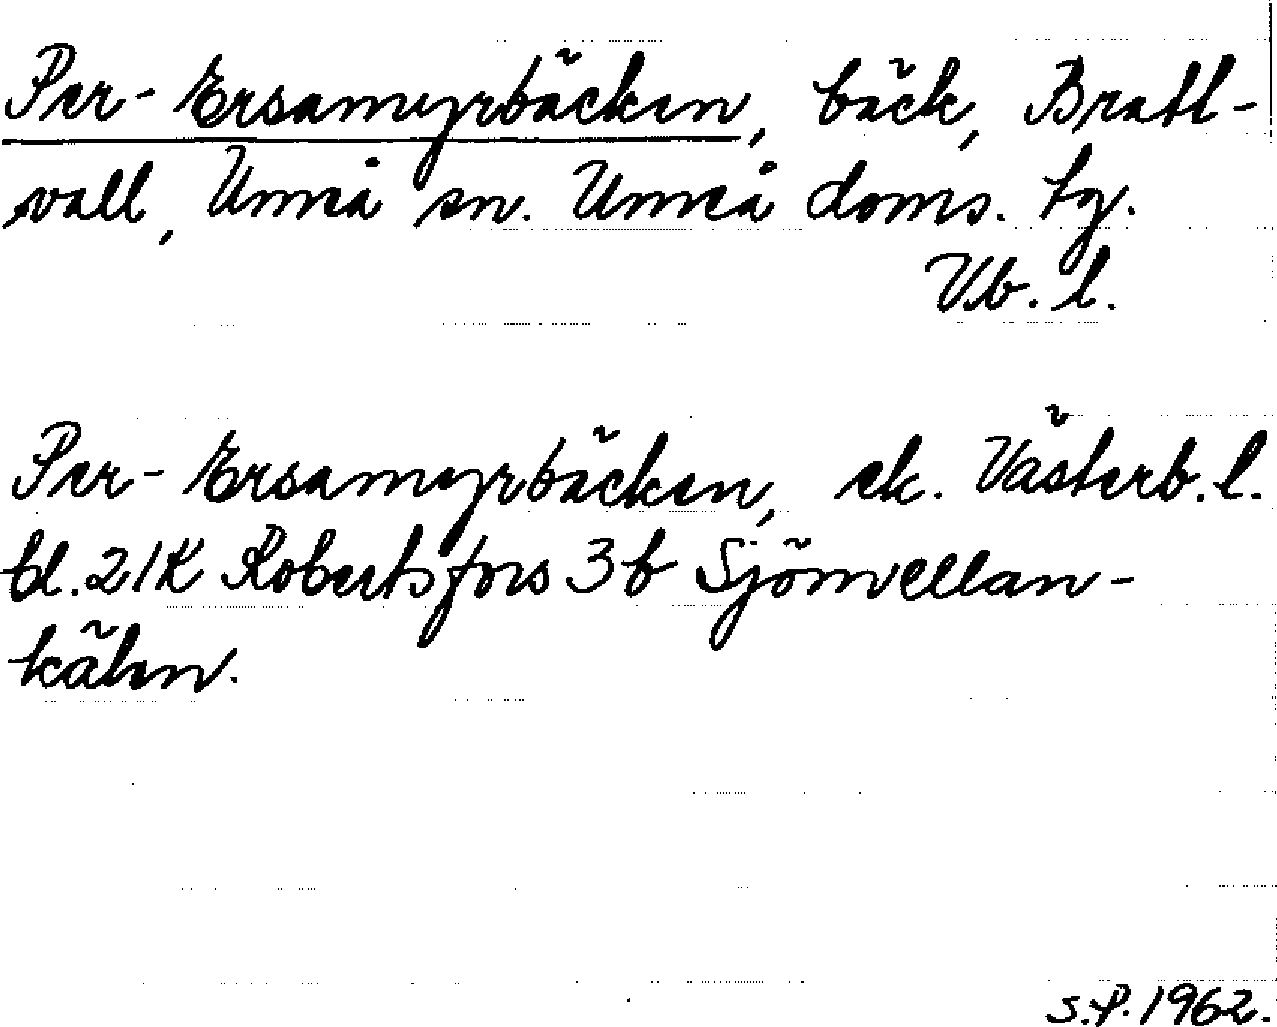 Per-Ersamyrbäcken, bäck, Bratt-
vall, Umeå sn. Umeå doms. tg.
Vb. l.
Per-Ersamyrbäcken, ek. Västerb. l.
bl. 21K Robertsfors 3b Sjömellan-
kälen.
S.P. 1962.